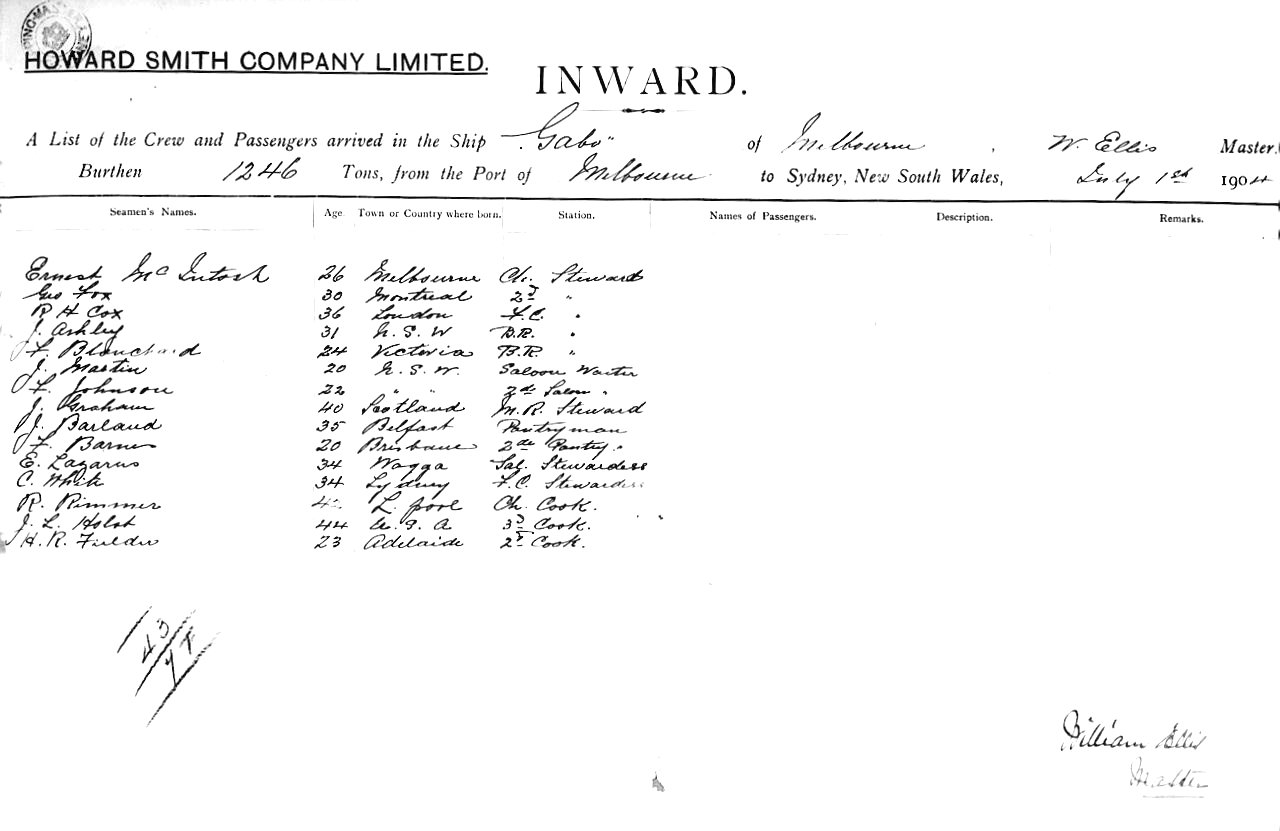 HOWARD SMITH COMPANY LIMITED.
INWARD.
A List of the Crew and Passengers arrived in the Ship "Gabo" of Melbourne, W. Ellis Master,
Burthen 1246 Tons, from the Port of Melbourne to Sydney, New South Wales, July 1st 1904
Seamen's Names. Age Town or Country where born. Station. Names of Passengers. Description. Remarks.
Ernest McIntosh 26 Melbourne Ch. Steward
Geo Fox 30 Montreal 2nd "
R H Cox 36 London F.C. "
J. Ashley 31 N.S.W B.R. "
F. Blanchard 24 Victoria B.R. "
J. Martin 20 N.S.W. Saloon Waiter
F. Johnson 22 " " 2nd Saloon "
J. Graham 40 Scotland M.R. Steward
J. Barland 35 Belfast Pantryman
F. Barnes 20 Brisbane 2nd Pantry "
E. Lazarus 34 Wagga Sal. Stewardess
C. White 34 Sydney F.C. Stewardess
R. Rimmer L.pool Ch. Cook.
J. L. Holst 44 U.S.A 3rd Cook.
H. R. Fielder 23 Adelaide 2nd Cook.
43
William Ellis
Master